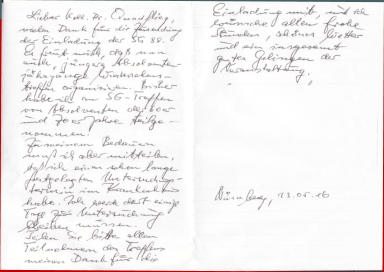 Lieber Koll. Dr. Quadflieg,
vielen Dank für die Zusendung
der Einladung der SG 51.
Es freut mich, daß nun
auch jüngere Absolventen-
jahrgänge Wiedersehens-
treffen organisieren. Bisher
habe ich an SG-Treffen
von Absolventen der 60er
und 70er Jahre teilge-
nommen.
Zu meinem Bedauern
muß ich aber mitteilen,
daß ich einen schon lange
festgelegten Untersuchungs-
termin im Krankenhaus
habe. Ich werde dort einige
Tage zur Untersuchung
bleiben müssen.
Teilen Sie bitte allen
Teilnehmern des Treffens
meinen Dank für die
Einladung mit, und ich
wünsche allen frohe
Stunden, schönes Wetter
und ein insgesamt
gutes Gelingen der
Veranstaltung.
Nürnberg, 13.05.16